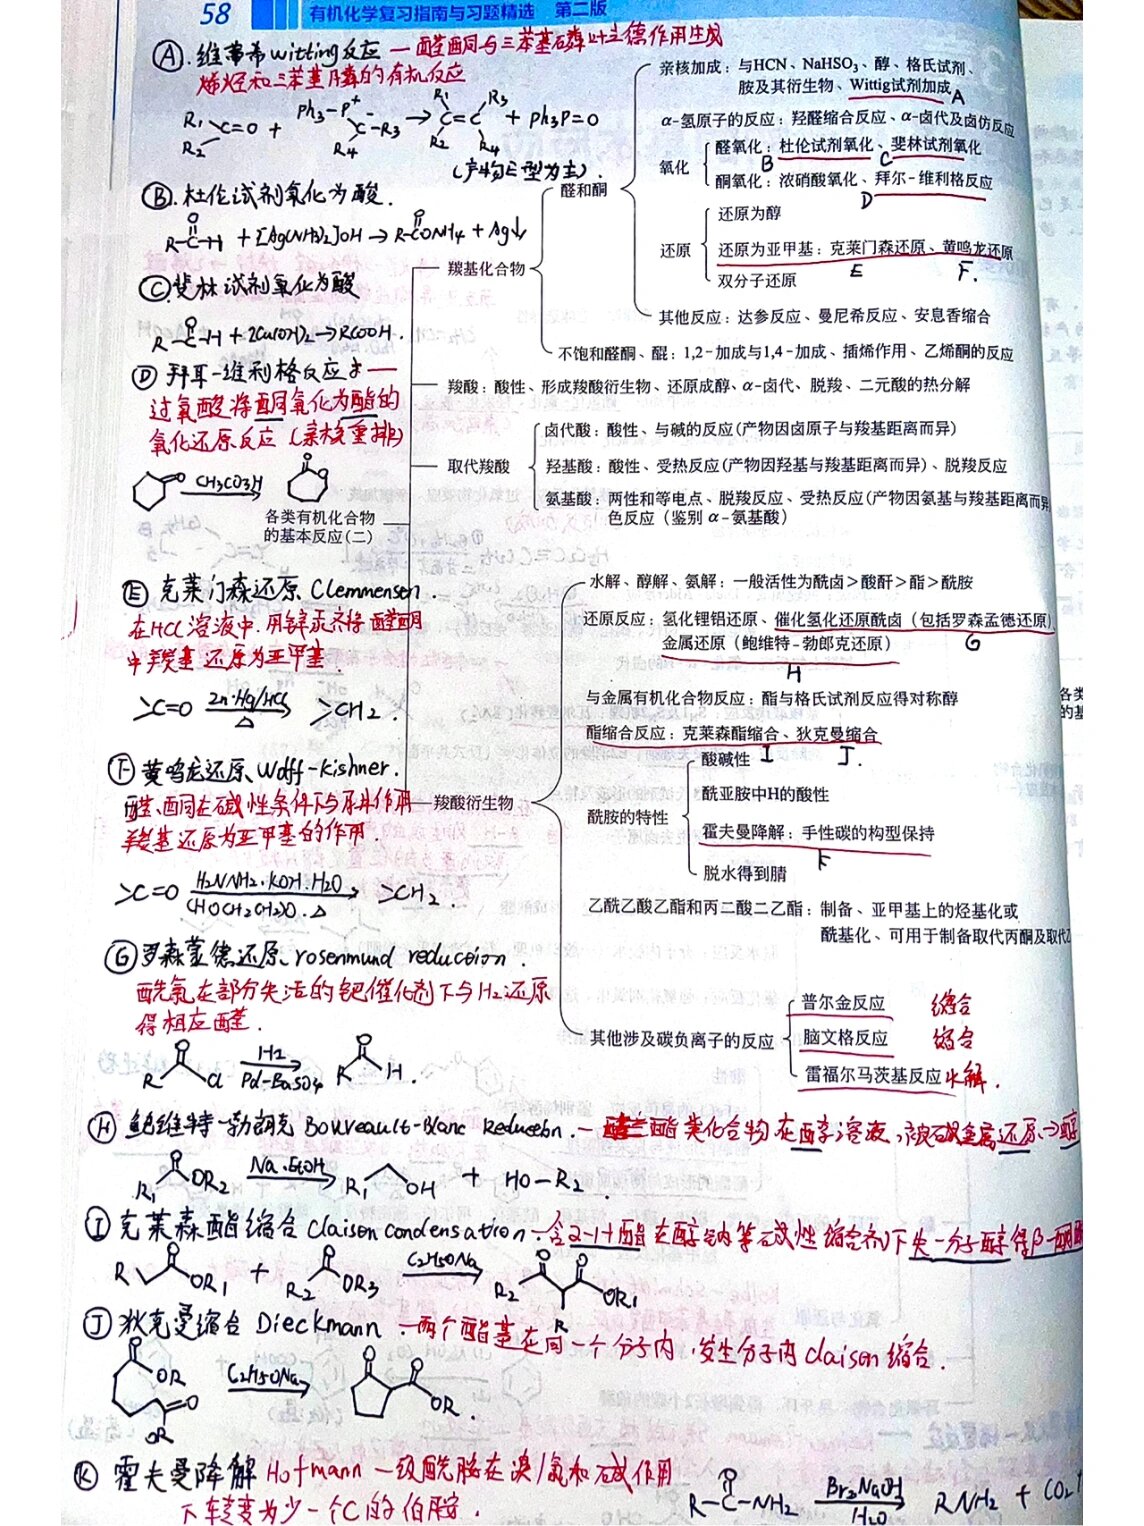 58 有机化学复习指南与习题精选 第二版
Ⓐ.维蒂希witting反应 — 醛酮与三苯基磷叶立德作用生成
烯烃和三苯基膦的有机反应
R₁ R₂ C=O + Ph₃-P⁺ C-R₃ R₄ → R₁ R₂ C=C R₃ R₄ + Ph₃P=O
(产物E型为主).
Ⓑ.杜伦试剂氧化为酸.
R-C(=O)-H + [Ag(NH₃)₂]OH → R-CONH₄ + Ag↓
Ⓒ.斐林试剂氧化为酸
R-C(=O)-H + 2Cu(OH)₂ → RCOOH.
Ⓓ 拜耳-维利格反应 —
过氧酸将酮氧化为酯的
氧化还原反应 (亲核重排)
CH₃CO₃H
各类有机化合物
的基本反应(二)
羰基化合物
醛和酮
亲核加成：与HCN、NaHSO₃、醇、格氏试剂、
胺及其衍生物、Wittig试剂加成 A
α-氢原子的反应：羟醛缩合反应、α-卤代及卤仿反应
氧化
醛氧化：杜伦试剂氧化、斐林试剂氧化
B C
酮氧化：浓硝酸氧化、拜尔-维利格反应
D
还原
还原为醇
还原为亚甲基：克莱门森还原、黄鸣龙还原
E F.
双分子还原
其他反应：达参反应、曼尼希反应、安息香缩合
不饱和醛酮、醌：1,2-加成与1,4-加成、插烯作用、乙烯酮的反应
羧酸：酸性、形成羧酸衍生物、还原成醇、α-卤代、脱羧、二元酸的热分解
取代羧酸
卤代酸：酸性、与碱的反应(产物因卤原子与羧基距离而异)
羟基酸：酸性、受热反应(产物因羟基与羧基距离而异)、脱羧反应
氨基酸：两性和等电点、脱羧反应、受热反应(产物因氨基与羧基距离而异
色反应（鉴别 α-氨基酸）
羧酸衍生物
水解、醇解、氨解：一般活性为酰卤>酸酐>酯>酰胺
还原反应：氢化锂铝还原、催化氢化还原酰卤（包括罗森孟德还原）、
G
金属还原（鲍维特-勃郎克还原）
H
与金属有机化合物反应：酯与格氏试剂反应得对称醇
酯缩合反应：克莱森酯缩合、狄克曼缩合
I J.
酰胺的特性
酸碱性
酰亚胺中H的酸性
霍夫曼降解：手性碳的构型保持
F
脱水得到腈
乙酰乙酸乙酯和丙二酸二乙酯：制备、亚甲基上的烃基化或
酰基化、可用于制备取代丙酮及取代乙
其他涉及碳负离子的反应
普尔金反应 缩合
脑文格反应 缩合
雷福尔马茨基反应 水解.
各类
的基
Ⓔ 克莱门森还原 Clemmensen.
在HCl溶液中.用锌汞齐将醛酮
中羰基还原为亚甲基.
>C=O Zn·Hg/HCl △ >CH₂.
Ⓕ 黄鸣龙还原、Wolff-Kishner.
醛、酮在碱性条件下与肼作用
羰基还原为亚甲基的作用.
>C=O H₂NNH₂.KOH.H₂O (HOCH₂CH₂)O.△ >CH₂.
Ⓖ 罗森蒙德还原、rosenmund reduction.
酰氯在部分失活的钯催化剂下与H₂还原
得相应醛.
R O Cl H₂ Pd-BaSO₄ R O H.
Ⓗ 鲍维特-勃朗克 Bouveault-Blanc Reduction. — 酯类化合物在醇溶液,被碱金属还原→醇
R₁ O OR₂ Na.EtOH R₁ OH + HO-R₂.
Ⓘ 克莱森酯缩合 Claisen condensation — 含α-H酯在醇钠等碱性缩合剂下失一分子醇得β-酮酯
R O OR₁ + R₂ O OR₃ C₂H₅ONa R₂ O O OR₁ R
Ⓙ 狄克曼缩合 Dieckmann — 两个酯基在同一个分子内,发生分子内claisen缩合.
O OR O OR C₂H₅ONa O O OR.
Ⓚ 霍夫曼降解 Hofmann 一级酰胺在溴/氯和碱作用
下转变为少一个C的伯胺.
R-C(=O)-NH₂ Br₂NaOH H₂O RNH₂ + CO₂↑